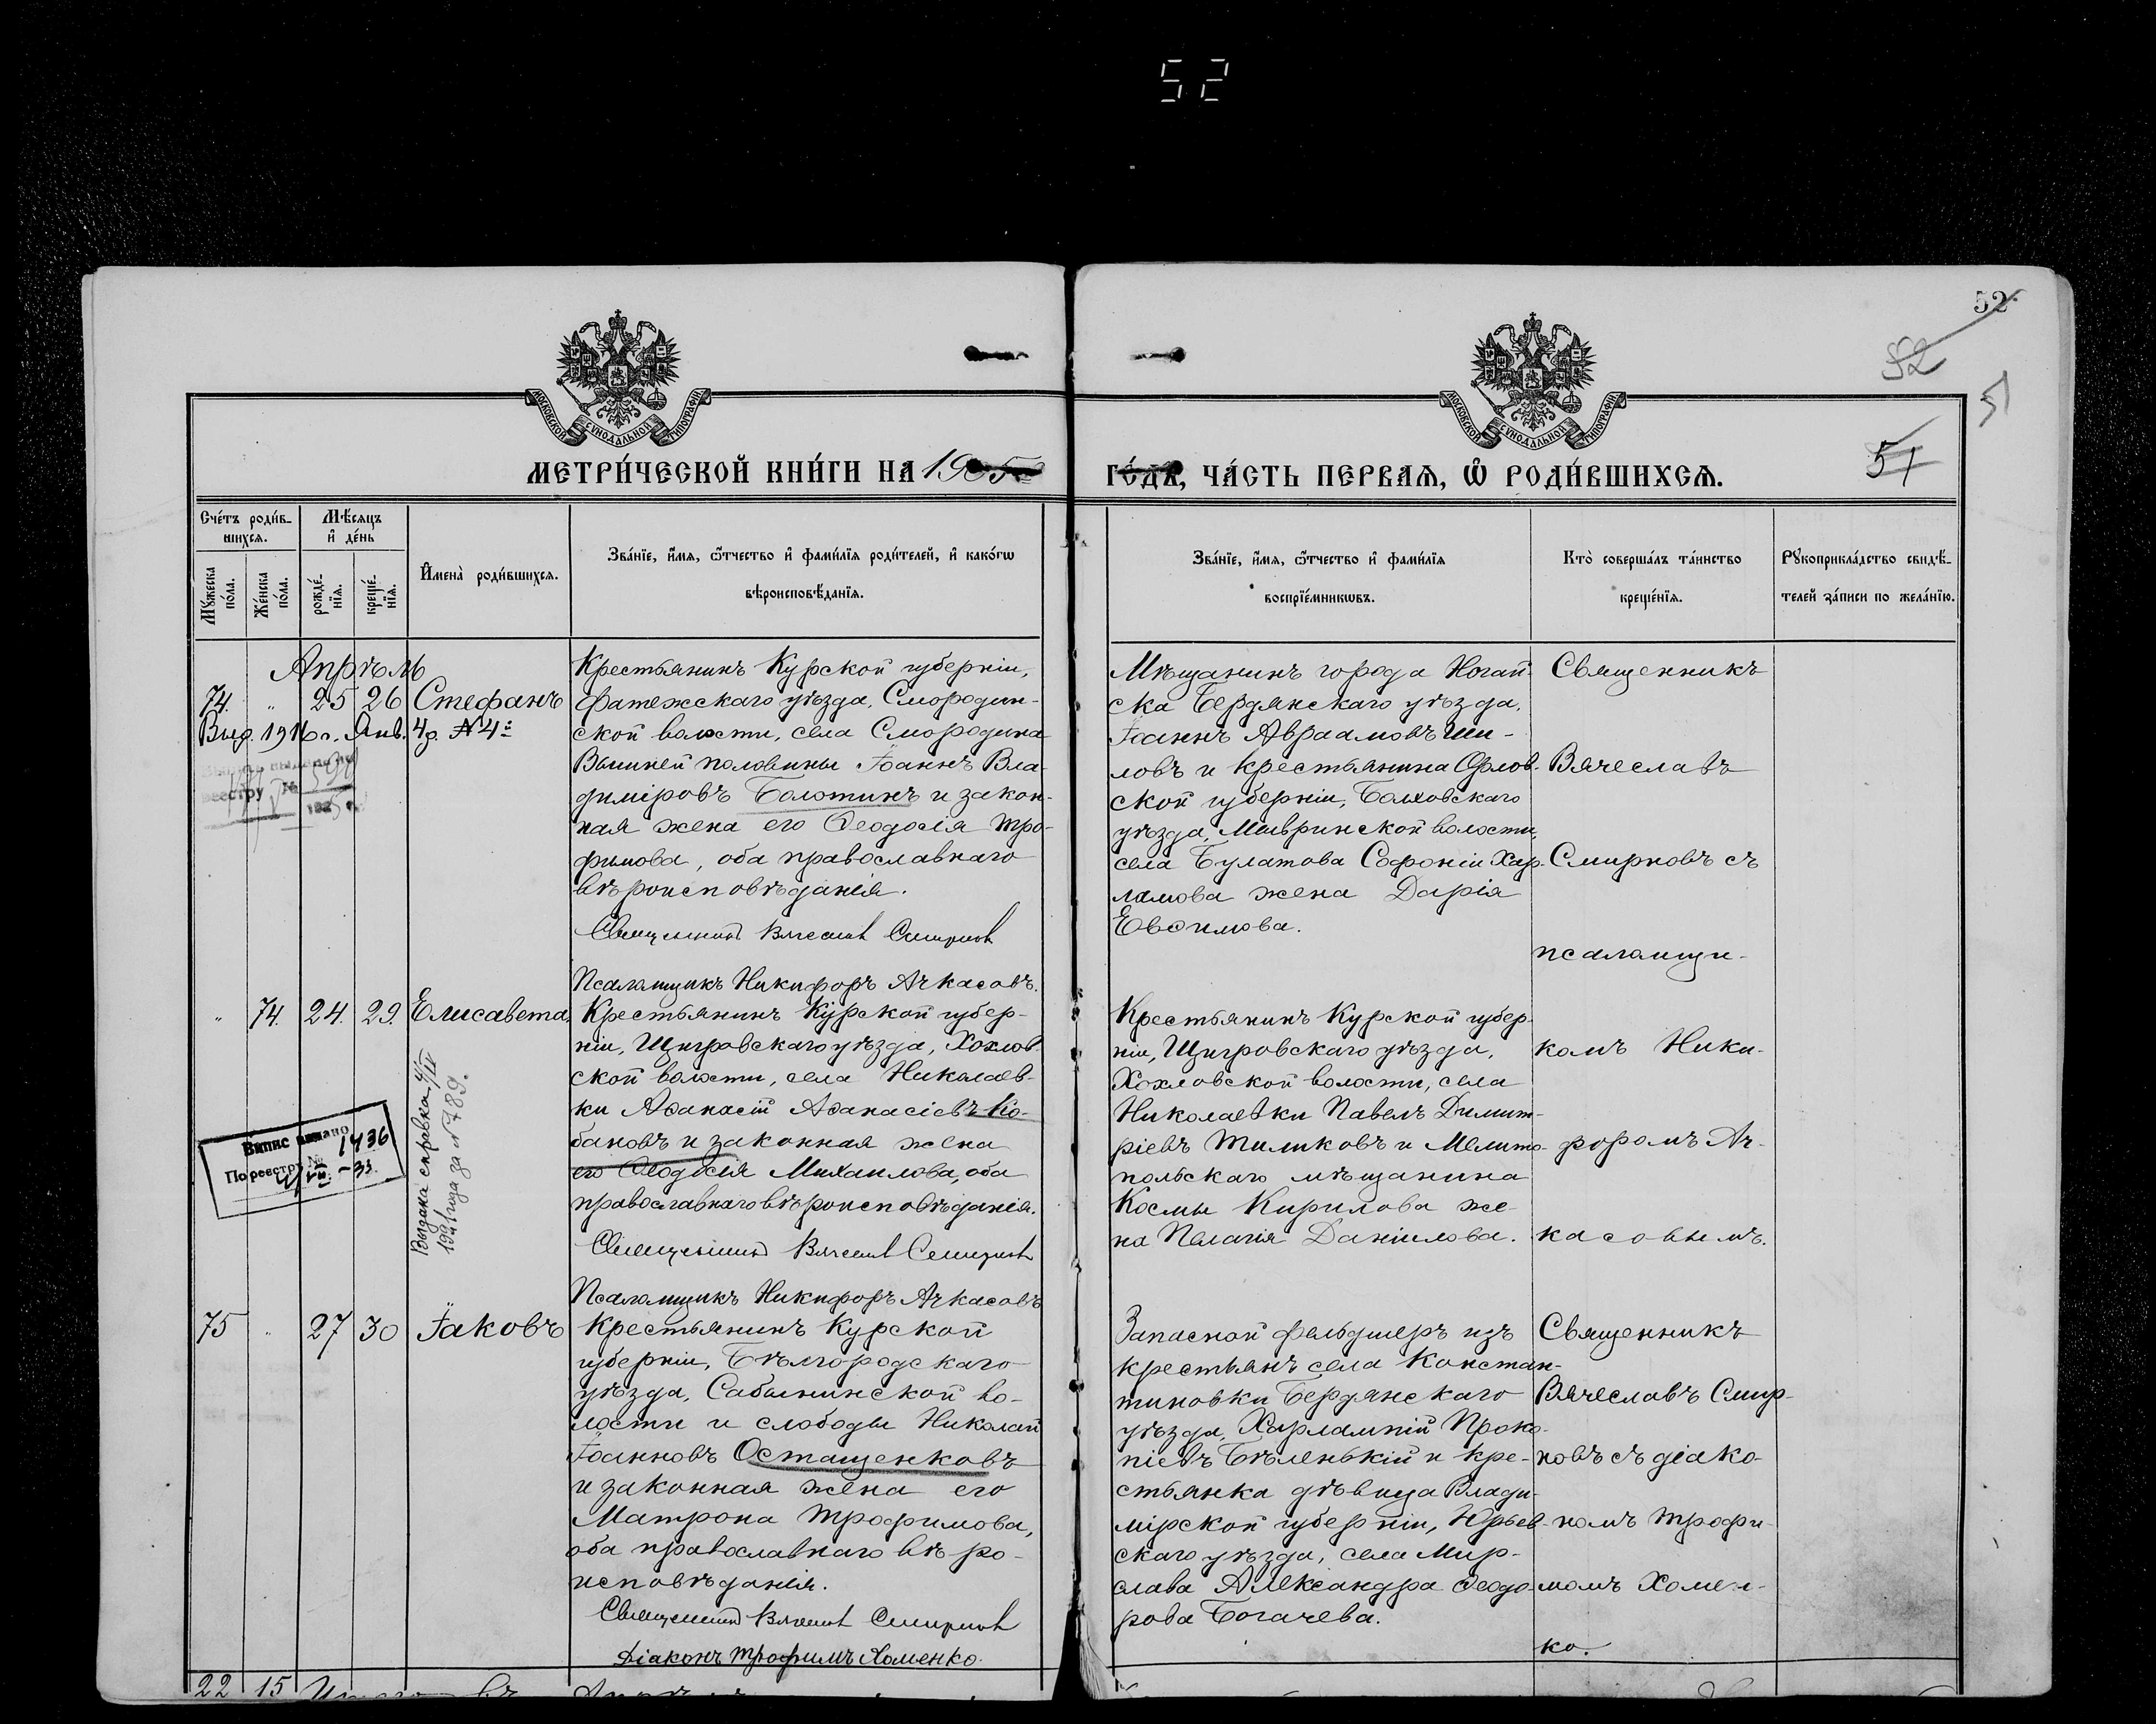 52
52
52
51
51
МОСКОВСКОЙ СѴНОДАЛЬНОЙ ТИПОГРАФІИ
МОСКОВСКОЙ СѴНОДАЛЬНОЙ ТИПОГРАФІИ
МЕТРИ́ЧЕСКОЙ КНИ́ГИ НА 1905
ГО́ДЪ, ЧА́СТЬ ПЕРВАѦ, Ѡ РОДИ́ВШИХСѦ.
Сче́тъ роди́в-
шихсѧ.
Мѣ́сѧцъ
и҆ де́нь
Мꙋ́жеска
по́ла.
Же́нска
по́ла.
рожде́-
нїѧ.
креще́-
нїѧ.
И҆мена̀ роди́вшихсѧ.
Зва́нїе, и҆́мѧ, ѻ҆́тчество и҆ фами́лїѧ роди́телей, и҆ како́гѡ
вѣроисповѣ́данїѧ.
Зва́нїе, и҆́мѧ, ѻ҆́тчество и҆ фами́лїѧ
воспрїе́мникѡвъ.
Кто̀ соверша́лъ та́инство
креще́нїѧ.
Рꙋкоприкла́дство свидѣ́-
телей за́писи по жела́нїю.
Апрѣль
74. " 25 26 Стефанъ
Выд. 1916 г. Янв. 4 д. № 4:
Крестьянинъ Курской губерніи,
Фатежскаго уѣзда, Смородин-
ской волости, села Смородина
Вышней половины Іоаннъ Вла-
диміровъ Болотинъ и закон-
ная жена его Ѳеодосія Тро-
фимова, оба православнаго
вѣроисповѣданія.
Священникъ Вячеславъ Смирновъ
Псаломщикъ Никифоръ Ачкасовъ.
Мѣщанинъ города Ногай-
ска Бердянскаго уѣзда,
Іоаннъ Авраамовъ Ши-
ловъ и крестьянина Орлов-
ской губерніи, Болховскаго
уѣзда, волости,
села Булатова Софонія Хар-
ламова жена Дарія
Евѳимова.
Священникъ
Вячеславъ
Смирновъ съ
псаломщи-
комъ Ники-
форомъ Ач-
касовымъ.
" 74. 24. 29. Елисавета,
Выдана справка
1991 года за № 789.
Випис видано
По реестру № 1436
Крестьянинъ Курской губер-
ніи, Щигровскаго уѣзда, Хохлов-
ской волости, села Николаев-
ки Аѳанасій Аѳанасіевъ Ко-
бановъ и законная жена
его Ѳеодосія Михаилова, оба
православнаго вѣроисповѣданія.
Священникъ Вячеславъ Смирновъ
Псаломщикъ Никифоръ Ачкасовъ
Крестьянинъ Курской губер-
ніи, Щигровскаго уѣзда,
Хохловской волости, села
Николаевки Павелъ Димит-
ріевъ Тиликовъ и Мелито-
польскаго мѣщанина
Космы Кирилова же-
на Пелагія Даніилова.
75 " 27 30 Іаковъ
Крестьянинъ Курской
губерніи, Бѣлгородскаго
уѣзда, Сабынинской во-
лости и слободы Николай
Іоанновъ Остащенковъ
и законная жена его
Матрона Трофимова,
оба православнаго вѣро-
исповѣданія.
Священникъ Вячеславъ Смирновъ
Діаконъ Трофимъ Хоменко.
Запасной фельдшеръ изъ
крестьянъ села Констан-
тиновки Бердянскаго
уѣзда, Харлампій Проко-
піевъ Бѣленькій и кре-
стьянка дѣвица Влади-
мірской губерніи, Юрьев-
скаго уѣзда, села Мир-
слава Александра Ѳеодо-
рова Богачева.
Священникъ
Вячеславъ Смир-
новъ съ діако-
номъ Трофи-
момъ Хомен-
ко.
22 15